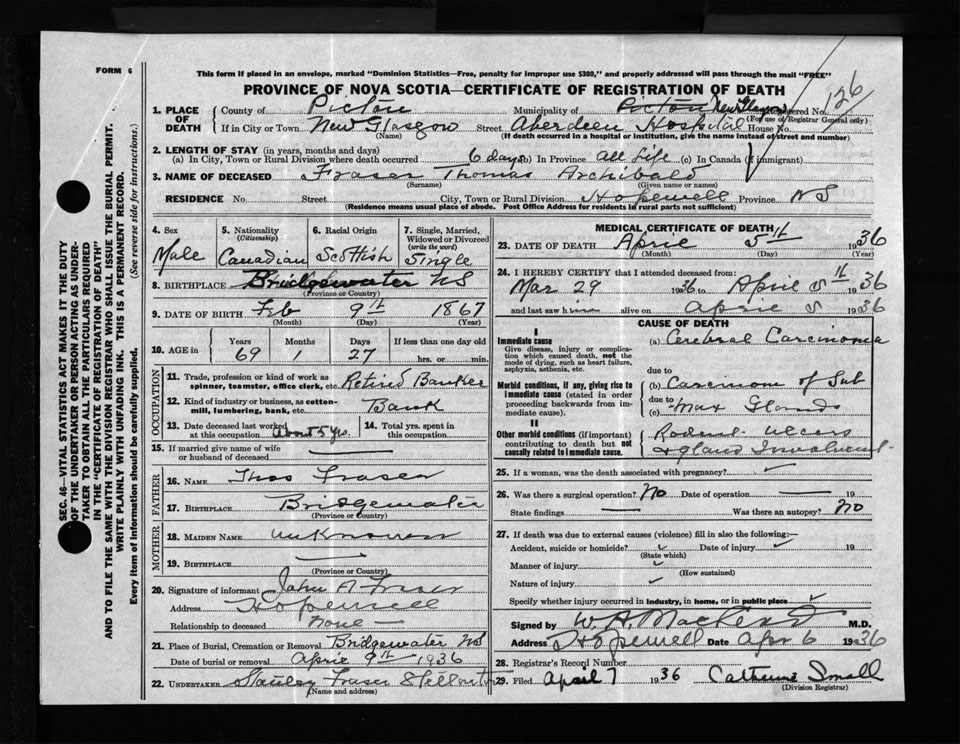 FORM 6
This form if placed in an envelope, marked "Dominion Statistics—Free, penalty for improper use $300," and properly addressed will pass through the mail "FREE"
PROVINCE OF NOVA SCOTIA—CERTIFICATE OF REGISTRATION OF DEATH
126
1. PLACE OF DEATH County of Pictou Municipality of Pictou New Glasgow Registered No.
(For use of Registrar General only)
If in City or Town New Glasgow Street Aberdeen Hospital House No.
(Name) (If death occurred in a hospital or institution, give the name instead of street and number)
2. LENGTH OF STAY (in years, months and days)
(a) In City, Town or Rural Division where death occurred 6 days (b) In Province all Life (c) In Canada (if immigrant)
3. NAME OF DECEASED Fraser Thomas Archibald
(Surname) (Given name or names)
RESIDENCE No. Street City, Town or Rural Division Hopewell Province NS
(Residence means usual place of abode. Post Office Address for residents in rural parts not sufficient)
4. Sex Male
5. Nationality (Citizenship) Canadian
6. Racial Origin Scottish
7. Single, Married, Widowed or Divorced (write the word) Single
8. BIRTHPLACE Bridgewater NS
(Province or Country)
9. DATE OF BIRTH Feb 9th 1867
(Month) (Day) (Year)
10. AGE in Years 69 Months 1 Days 27 If less than one day old hrs. or min.
OCCUPATION
11. Trade, profession or kind of work as spinner, teamster, office clerk, etc. Retired Banker
12. Kind of industry or business, as cotton-mill, lumbering, bank, etc. Bank
13. Date deceased last worked at this occupation about 5 yrs.
14. Total yrs. spent in this occupation
15. If married give name of wife or husband of deceased
FATHER
16. NAME Thos Fraser
17. BIRTHPLACE Bridgewater
(Province or Country)
MOTHER
18. MAIDEN NAME unknown
19. BIRTHPLACE
(Province or Country)
20. Signature of informant John A Fraser
Address Hopewell
Relationship to deceased none
21. Place of Burial, Cremation or Removal Bridgewater NS
Date of burial or removal April 9th 1936
22. UNDERTAKER Stanley Fraser
(Name and address)
MEDICAL CERTIFICATE OF DEATH
23. DATE OF DEATH April 5th 1936
(Month) (Day) (Year)
24. I HEREBY CERTIFY that I attended deceased from:
Mar 29 1936 to April 5th 1936
and last saw him alive on April 5 1936
CAUSE OF DEATH
I
Immediate cause
Give disease, injury or complication which caused death, not the mode of dying, such as heart failure, asphyxia, asthenia, etc.
(a) Cerebral Carcinoma
due to
Morbid conditions, if any, giving rise to immediate cause (stated in order proceeding backwards from immediate cause).
(b) Carcinom of Sub
due to
(c) Max Glands
II
Other morbid conditions (if important) contributing to death but not causally related to immediate cause.
Rodent Ulcers
& gland Involvement
25. If a woman, was the death associated with pregnancy?
26. Was there a surgical operation? No Date of operation 19
State findings Was there an autopsy? No
27. If death was due to external causes (violence) fill in also the following:—
Accident, suicide or homicide? Date of injury 19
(State which)
Manner of injury
(How sustained)
Nature of injury
Specify whether injury occurred in industry, in home, or in public place
Signed by W. A. M.D.
Address Hopewell Date Apr 6 1936
28. Registrar's Record Number
29. Filed April 7 1936 Catherine Small
(Division Registrar)
SEC. 46—VITAL STATISTICS ACT MAKES IT THE DUTY
OF THE UNDERTAKER OR PERSON ACTING AS UNDERTAKER TO OBTAIN ALL THE PARTICULARS REQUIRED
IN THE "CERTIFICATE OF REGISTRATION OF DEATH"
AND TO FILE THE SAME WITH THE DIVISION REGISTRAR WHO SHALL ISSUE THE BURIAL PERMIT.
WRITE PLAINLY WITH UNFADING INK. THIS IS A PERMANENT RECORD.
Every item of information should be carefully supplied. (See reverse side for instructions.)